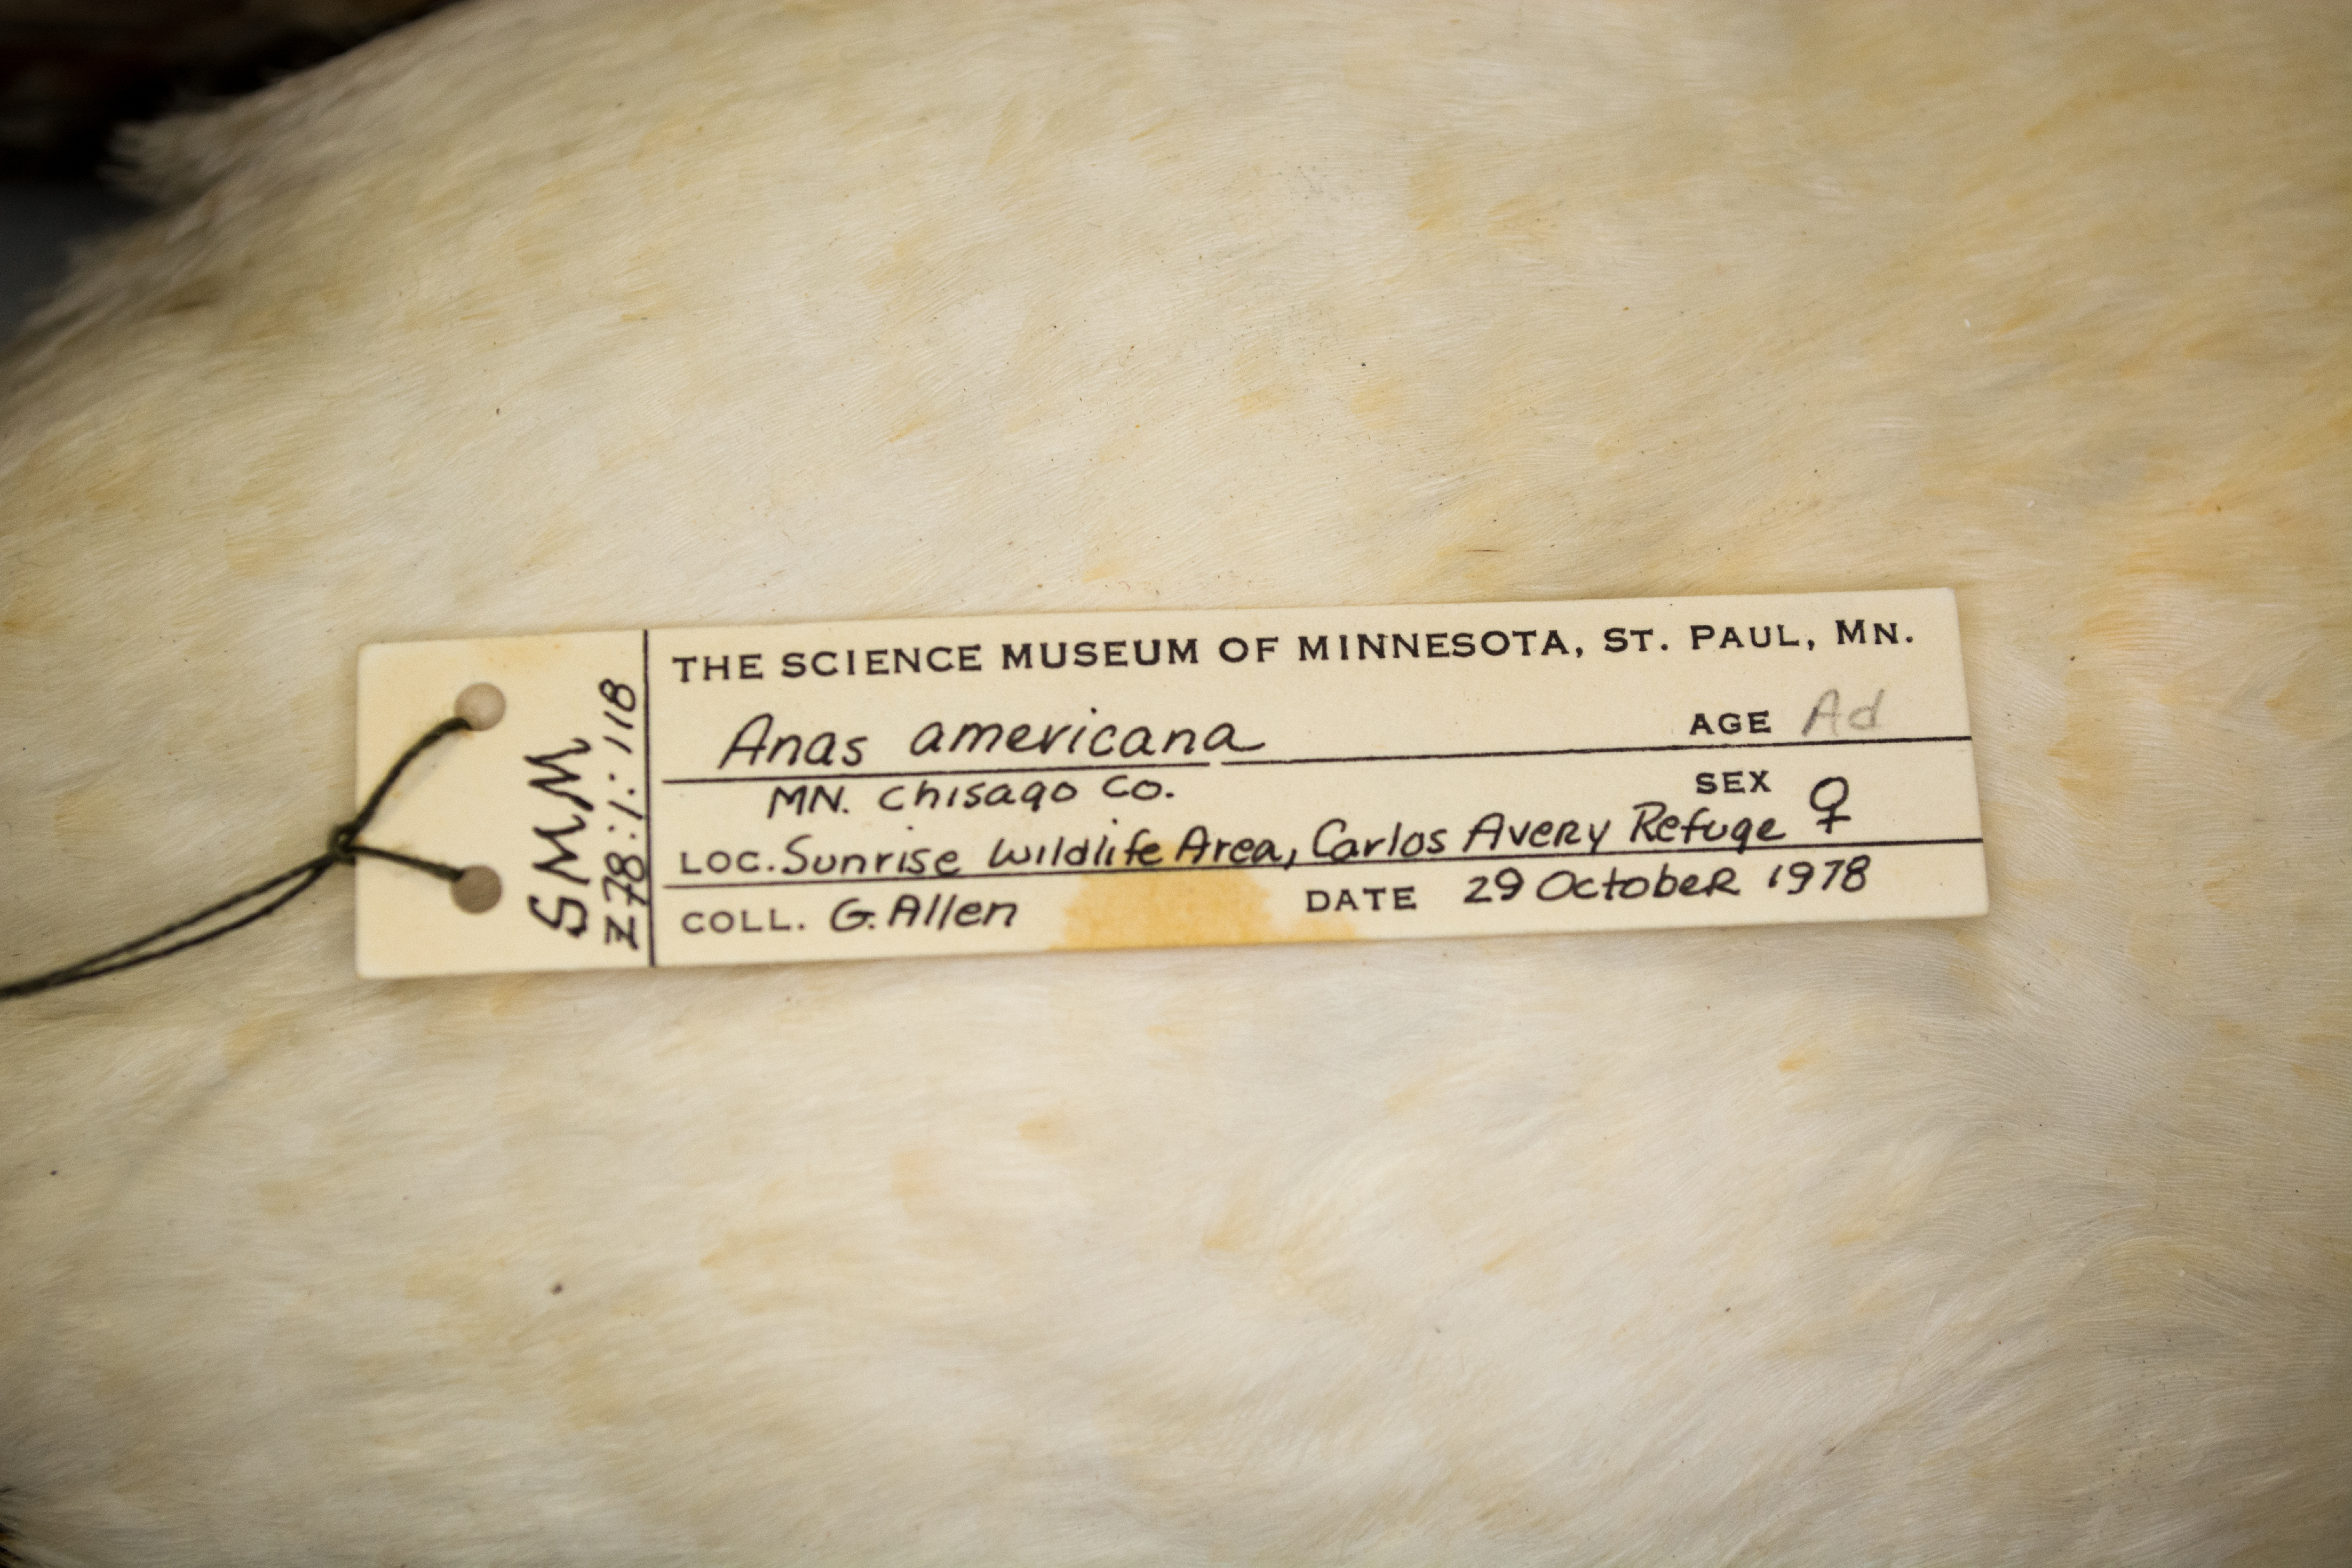 SMM
Z78:1:118
THE SCIENCE MUSEUM OF MINNESOTA, ST. PAUL, MN.
Anas americana AGE Ad
MN. Chisago Co. SEX ♀
LOC. Sunrise Wildlife Area, Carlos Avery Refuge
COLL. G. Allen DATE 29 October 1978